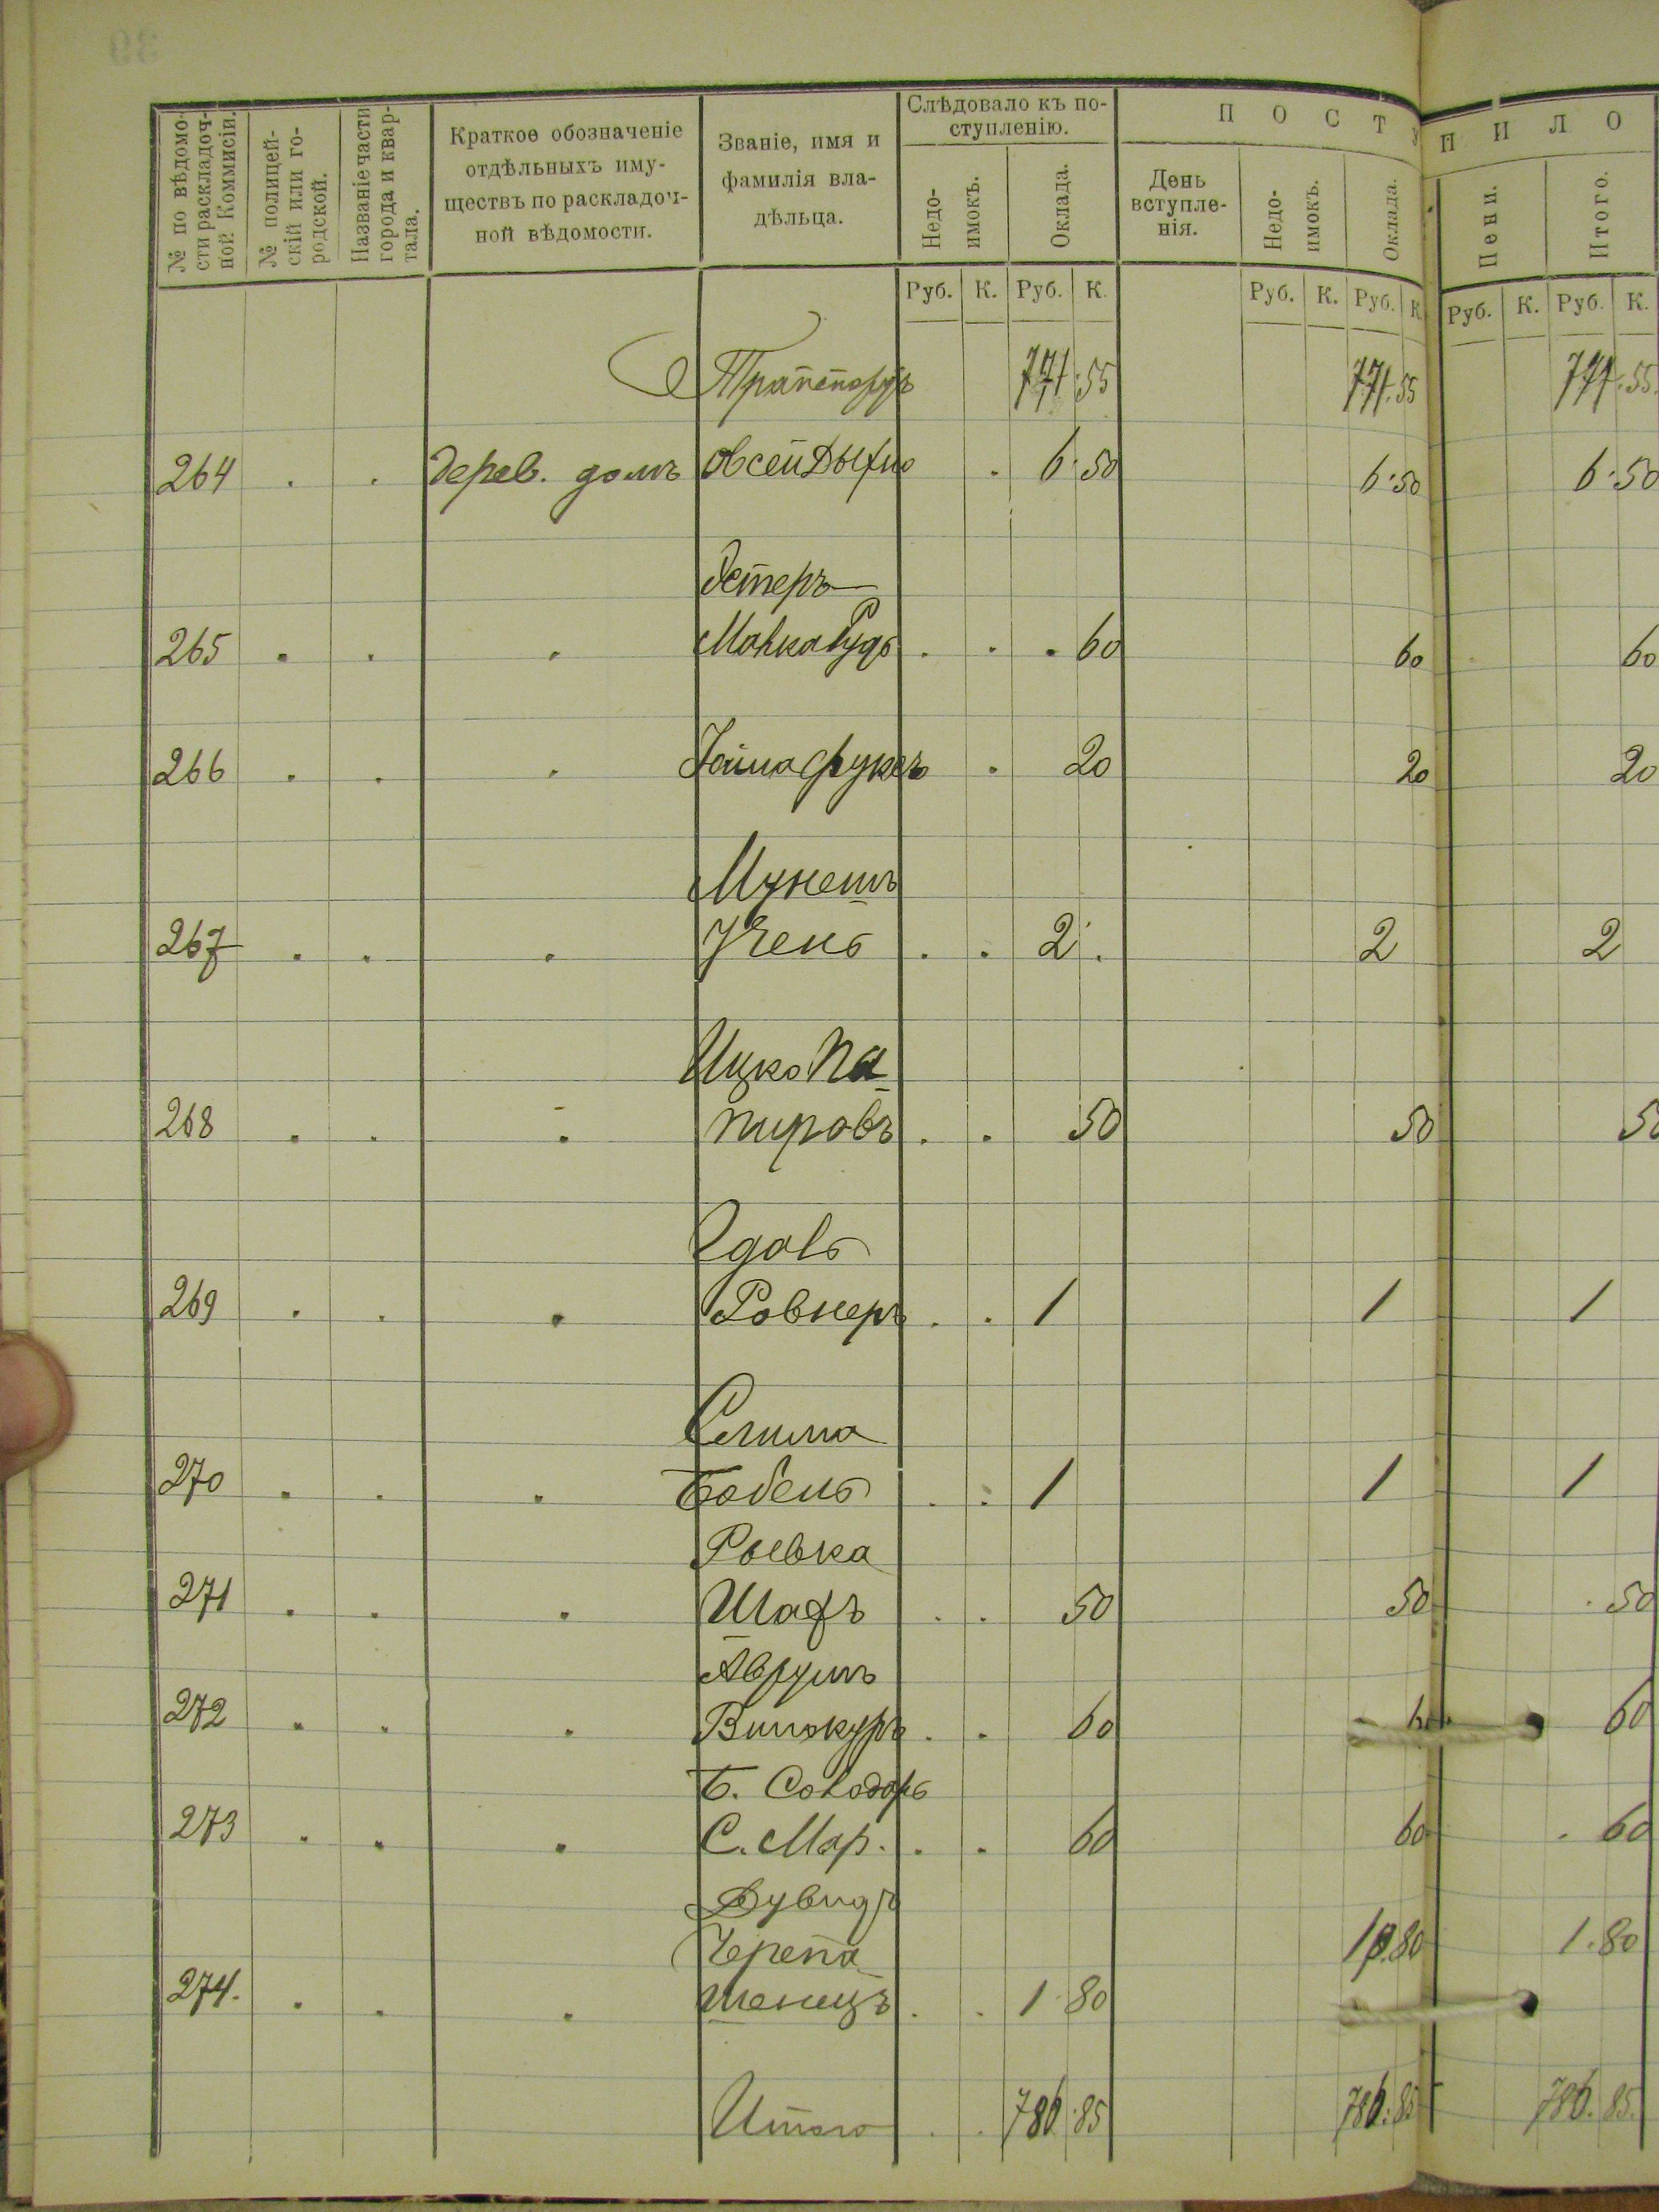 39
№ по вѣдомости раскладочной Коммисіи.
№ полицейскій или городской.
Названіе части города и квартала.
Краткое обозначеніе отдѣльныхъ имуществъ по раскладочной вѣдомости.
Званіе, имя и фамилія владѣльца.
Слѣдовало къ поступленію.
Недоимокъ.
Оклада.
ПОСТУ
День вступленія.
Недоимокъ.
Оклада.
ПИЛО
Пени.
Итого.
Руб. К. Руб. К. Руб. К. Руб. К. Руб. К. Руб. К.
Транспортъ 771.55 771.55 771.55
264 . . дерев. домъ Овсей Дыхно . 6.50 6.50 6.50
Эстеръ
265 . . . Малка Рудь . . . 60 60 60
266 . . . Хаима Фуксъ . 20 20 20
267 . . . Учень . . 2 . 2 2
Ицко Па-
268 . . . пировъ . . 50 50 50
269 . . . Ровнеръ . . 1 1 1
270 . . . . . 1 1 1
271 . . . Шафъ . . 50 50 . 50
Аврумъ
272 . . . Винокуръ . . 60 60 60
Б. Солодарь
273 . . . С. Мар. . . 60 60 . 60
Дувидъ
Черепа 1.80 1.80
274. . . . шенецъ . . 1 80
Итого . . 786.85 786.85 786.85.